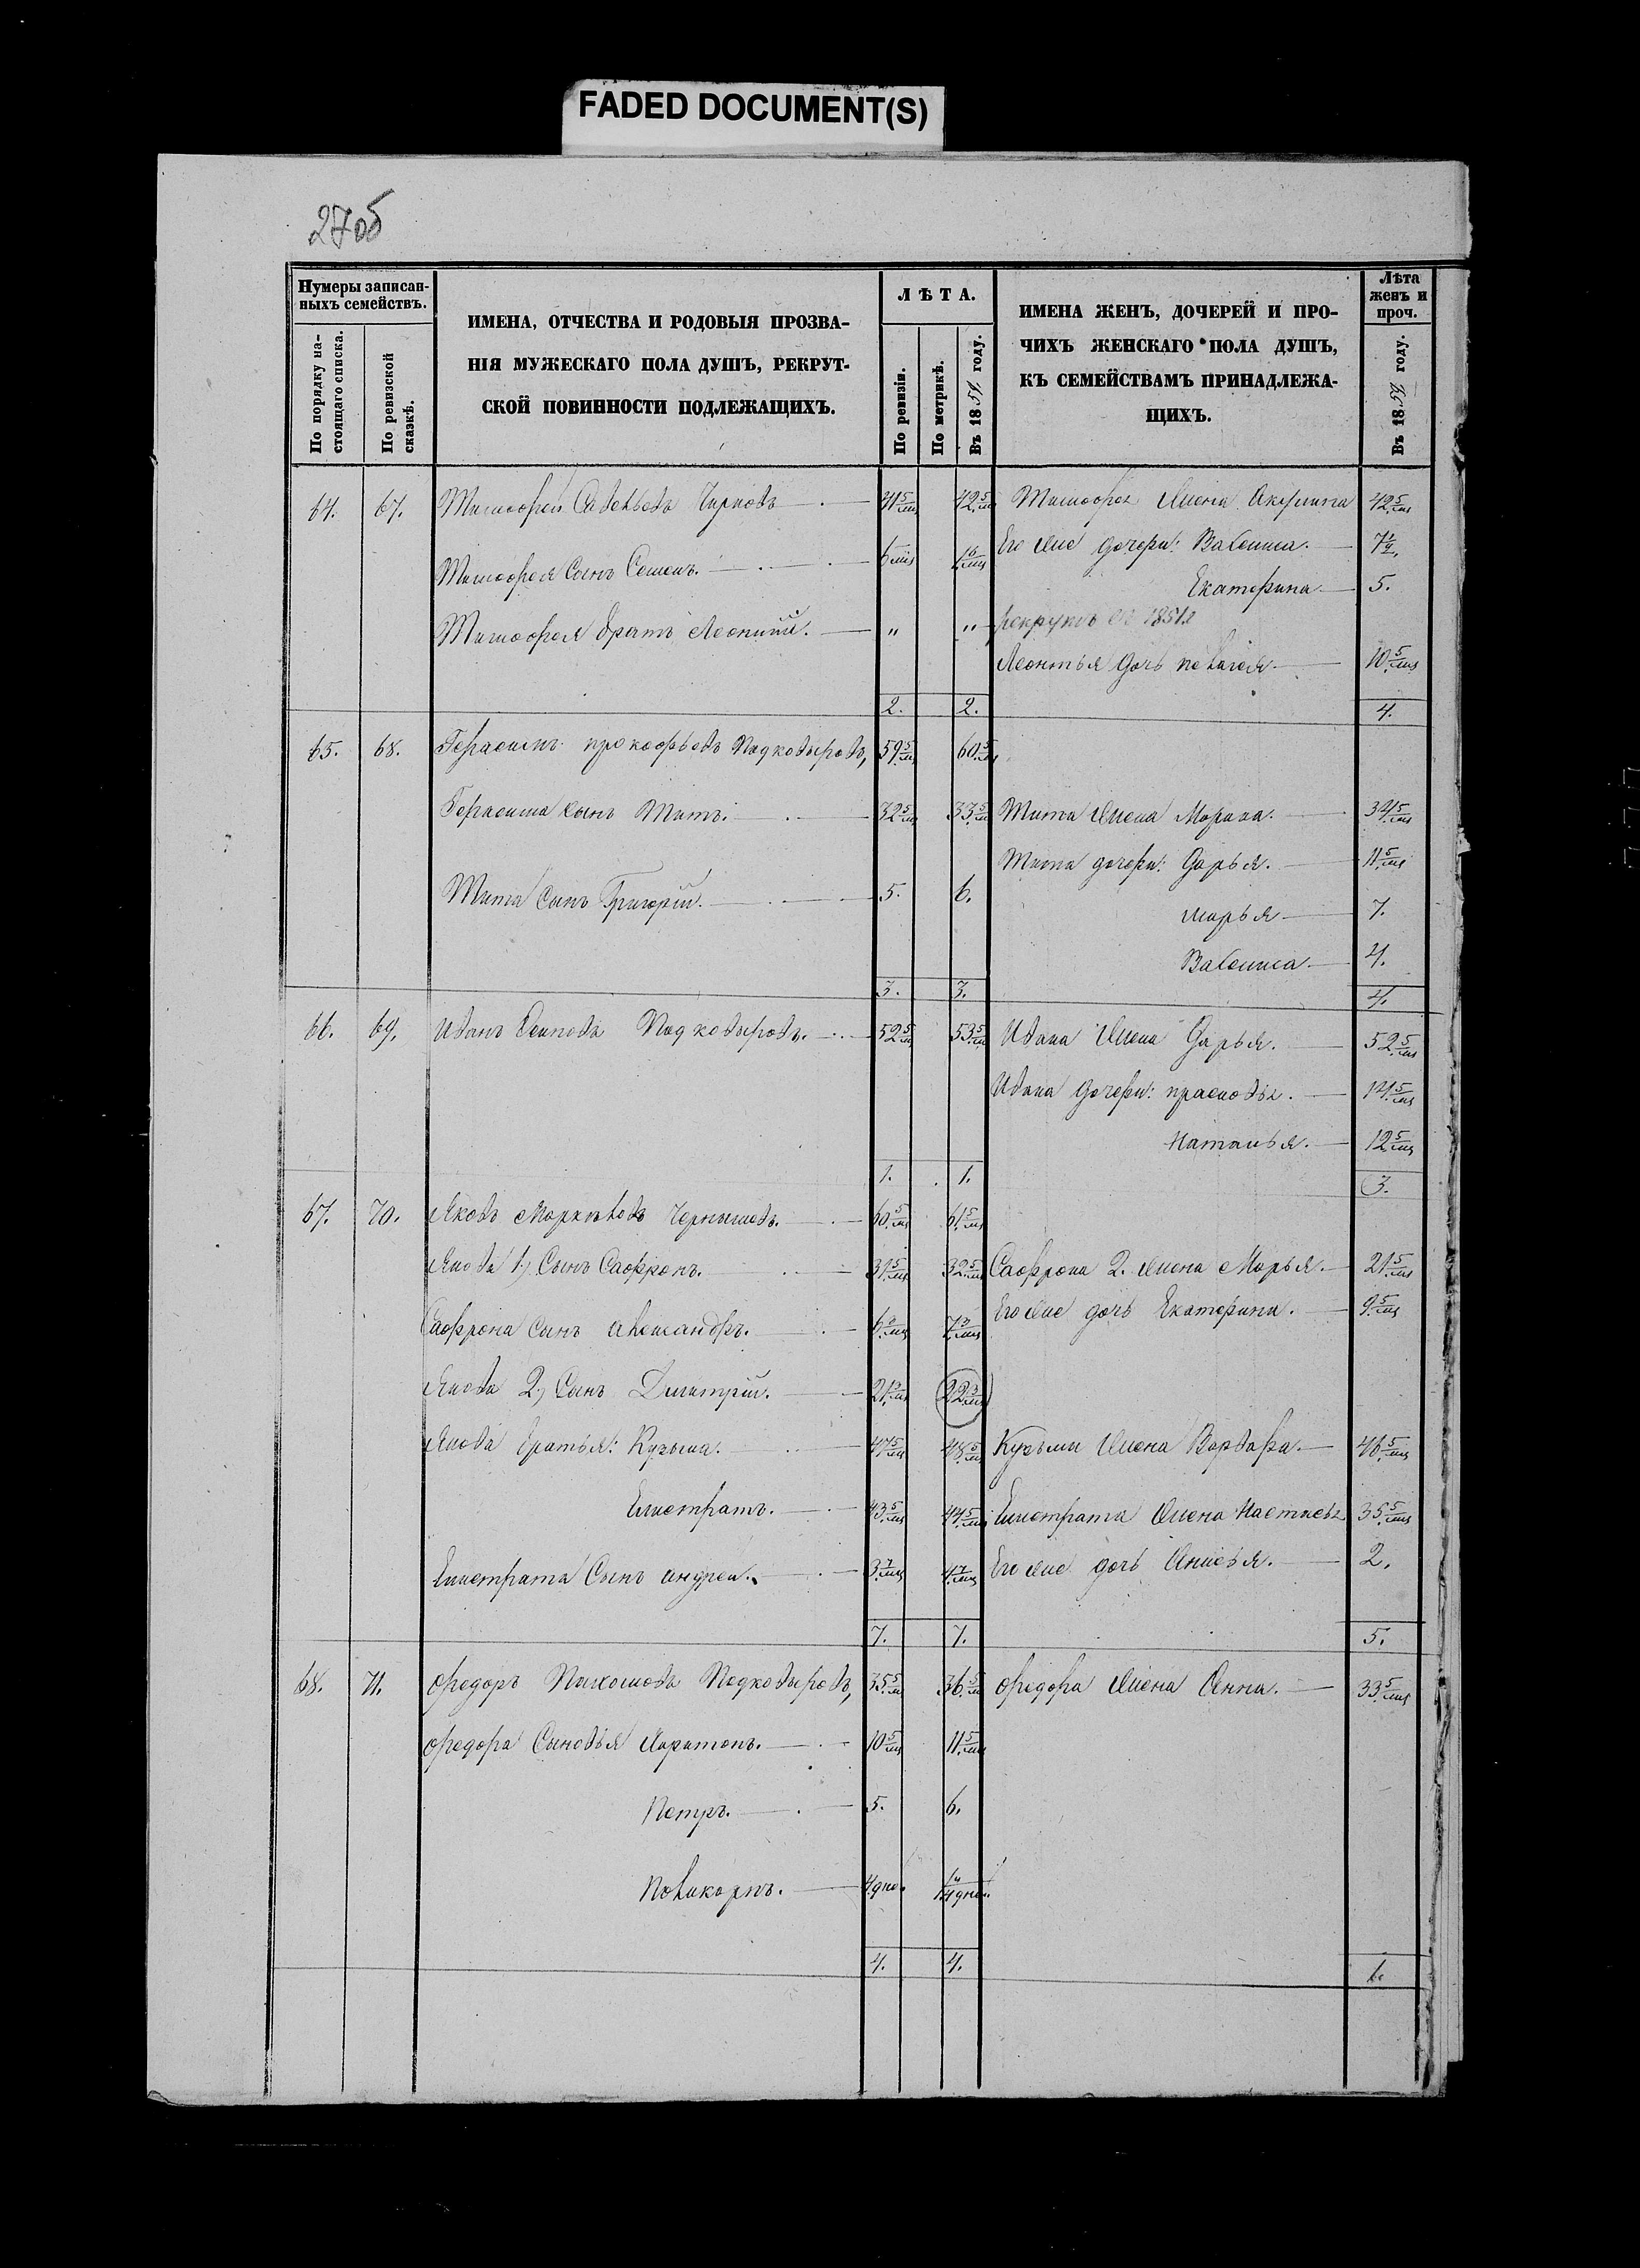 FADED DOCUMENT(S)
27об
Нумеры записан-
ныхъ семействъ.
По порядку на-
стоящаго списка.
По ревизской
сказкѣ.
ИМЕНА, ОТЧЕСТВА И РОДОВЫЯ ПРОЗВА-
НІЯ МУЖЕСКАГО ПОЛА ДУШЪ, РЕКРУТ-
СКОЙ ПОВИННОСТИ ПОДЛЕЖАЩИХЪ.
ЛѢТА.
По ревизіи.
По метрикѣ.
Въ 1851 году.
ИМЕНА ЖЕНЪ, ДОЧЕРЕЙ И ПРО-
ЧИХЪ ЖЕНСКАГО ПОЛА ДУШЪ,
КЪ СЕМЕЙСТВАМЪ ПРИНАДЛЕЖА-
ЩИХЪ.
Лѣта
женъ и
проч.
Въ 1851 году.
64. 67. Тимофей Савельевъ 41 5/мц 42 5/мц Тимофея жена Акулина 42 5/мц
Его же дочери: Василиса. 7 1/2
Тимофея сынъ Семенъ. 6 мц 1 6/мц
Екатерина 5.
Тимофея братъ Леонтій. " " рекрутъ 1851
Леонтья дочь Пелагея 10 5/мц
2. 2. 4.
65. 68. Герасимъ Прокофьевъ Подковыровъ, 59 5/мц 60 5/мц
Герасима сынъ Титъ. 32 5/мц 33 5/мц Тита жена Марина. 34 5/мц
Тита дочери: Дарья. 11 5/мц
Тита сынъ Григорій. 5. 6.
Марья 7.
Василиса 4.
3. 3. 4.
66. 69. Иванъ Осиповъ Подковыровъ. 52 5/мц 53 5/мц Ивана жена Дарья. 52 5/мц
Ивана дочери: Прасковья. 14 5/мц
Наталья. 12 5/мц
1. 1. 3.
67. 70. Яковъ Чернышовъ. 60 5/мц 61 5/мц
Якова 1) сынъ Сафронъ. 31 5/мц 32 5/мц Сафрона 2. жена Марья. 21 5/мц
Его же дочь Екатерина. 9 5/мц
Сафрона сынъ Александръ. 6 3/мц 7 3/мц
Якова 2) сынъ Димитрій. 21 3/мц 22 3/мц
Якова братья: Кузьма. 47 5/мц 48 5/мц Кузьмы жена Варвара. 46 5/мц
Елистратъ. 43 5/мц 44 5/мц Елистрата жена Настасья 35 5/мц
Елистрата сынъ Андрей. 3 7/мц 4 7/мц Его же дочь Анисья. 2.
7. 7. 5.
68. 71. Федоръ Подковыровъ, 35 5/мц 36 5/мц Федора жена Анна. 33 5/мц
Федора сыновья Харитонъ. 10 5/мц 11 5/мц
Петръ. 5. 6.
Поликарпъ. 4 дне.
4. 4. 1.